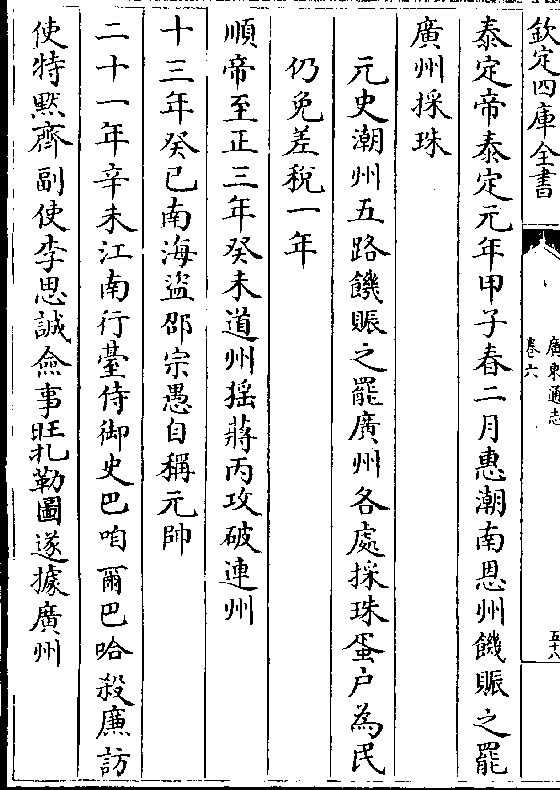 欽定四庫全書
廣東通志
卷六
五十八
泰定帝泰定元年甲子春二月惠潮南恩州饑賑之罷
廣州採珠
元史潮州五路饑賑之罷廣州各處採珠蛋户為民
仍免差税一年
順帝至正三年癸未道州猺蔣丙攻破連州
十三年癸巳南海盜邵宗愚自稱元帥
二十一年辛未江南行臺侍御史巴咱爾巴哈殺廉訪
使特黙齊副使李思誠僉事旺扎勒圖遂據廣州